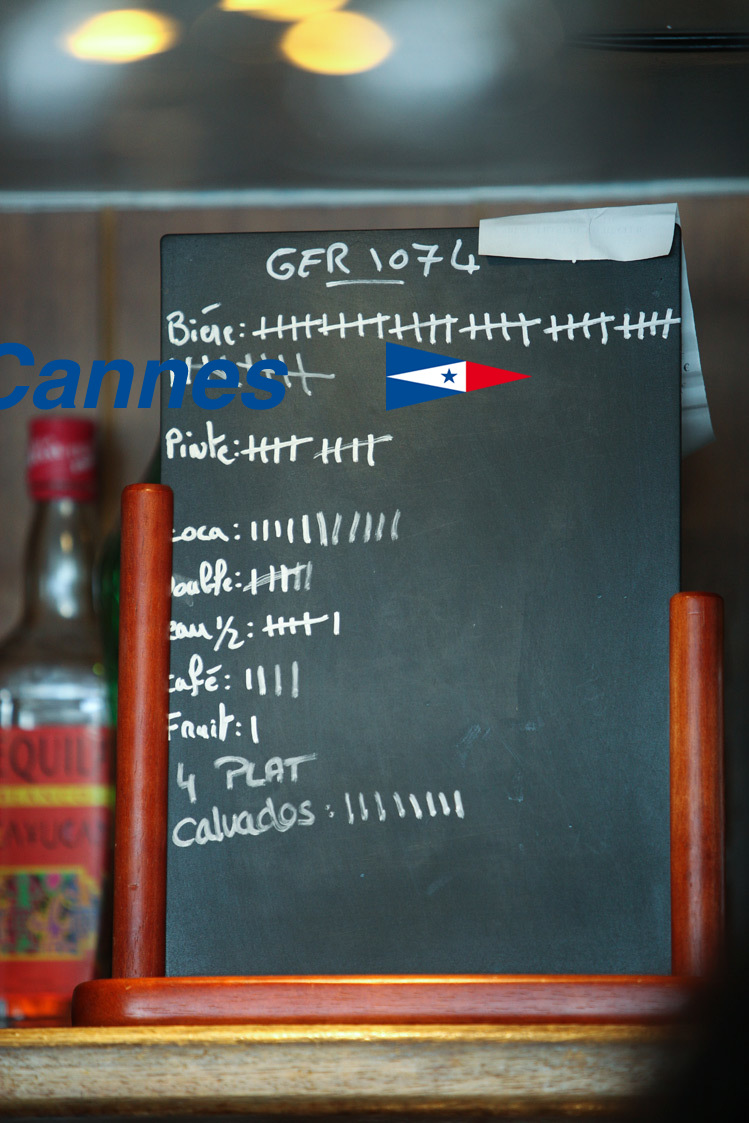 GER 1074
Bière:
Cannes
Pinte:
coca:
double:
eau 1/2:
café:
Fruit: |
4 PLAT
Calvados:
EQUIL